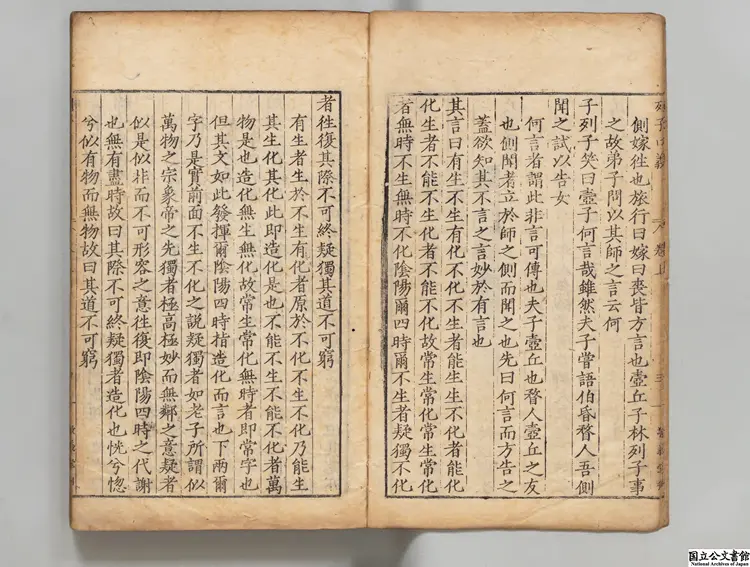 列子口義 卷上 三
側嫁往也旅行曰嫁曰喪皆方言也壺丘子林列子事
之故弟子問以其師之言云何
子列子笑曰壺子何言哉雖然夫子嘗語伯昏瞀人吾側
聞之試以告女
何言者謂此非言可傳也夫子壺丘也瞀人壺丘之友
也側聞者立於師之側而聞之也先曰何言而方告之
蓋欲知其不言之言妙於有言也
其言曰有生不生有化不化不生者能生生不化者能化
化生者不能不生化者不能不化故常生常化常生常化
者無時不生無時不化陰陽爾四時爾不生者疑獨不化
者往復其際不可終疑獨其道不可窮
有生者生於不生有化者原於不化不生不化乃能生
其生化其化此即造化是也不能不生不能不化者萬
物是也造化無生無化故常生常化無時者即常字也
但其文如此發揮爾陰陽四時指造化而言也下兩爾
字乃是實前面不生不化之說疑獨者如老子所謂似
萬物之宗象帝之先獨者極高極妙而無鄰之意疑者
似是似非而不可形容之意往復即陰陽四時之代謝
也無有盡時故曰其際不可終疑獨者造化也恍兮惚
兮似有物而無物故曰其道不可窮
国立公文書館
National Archives of Japan